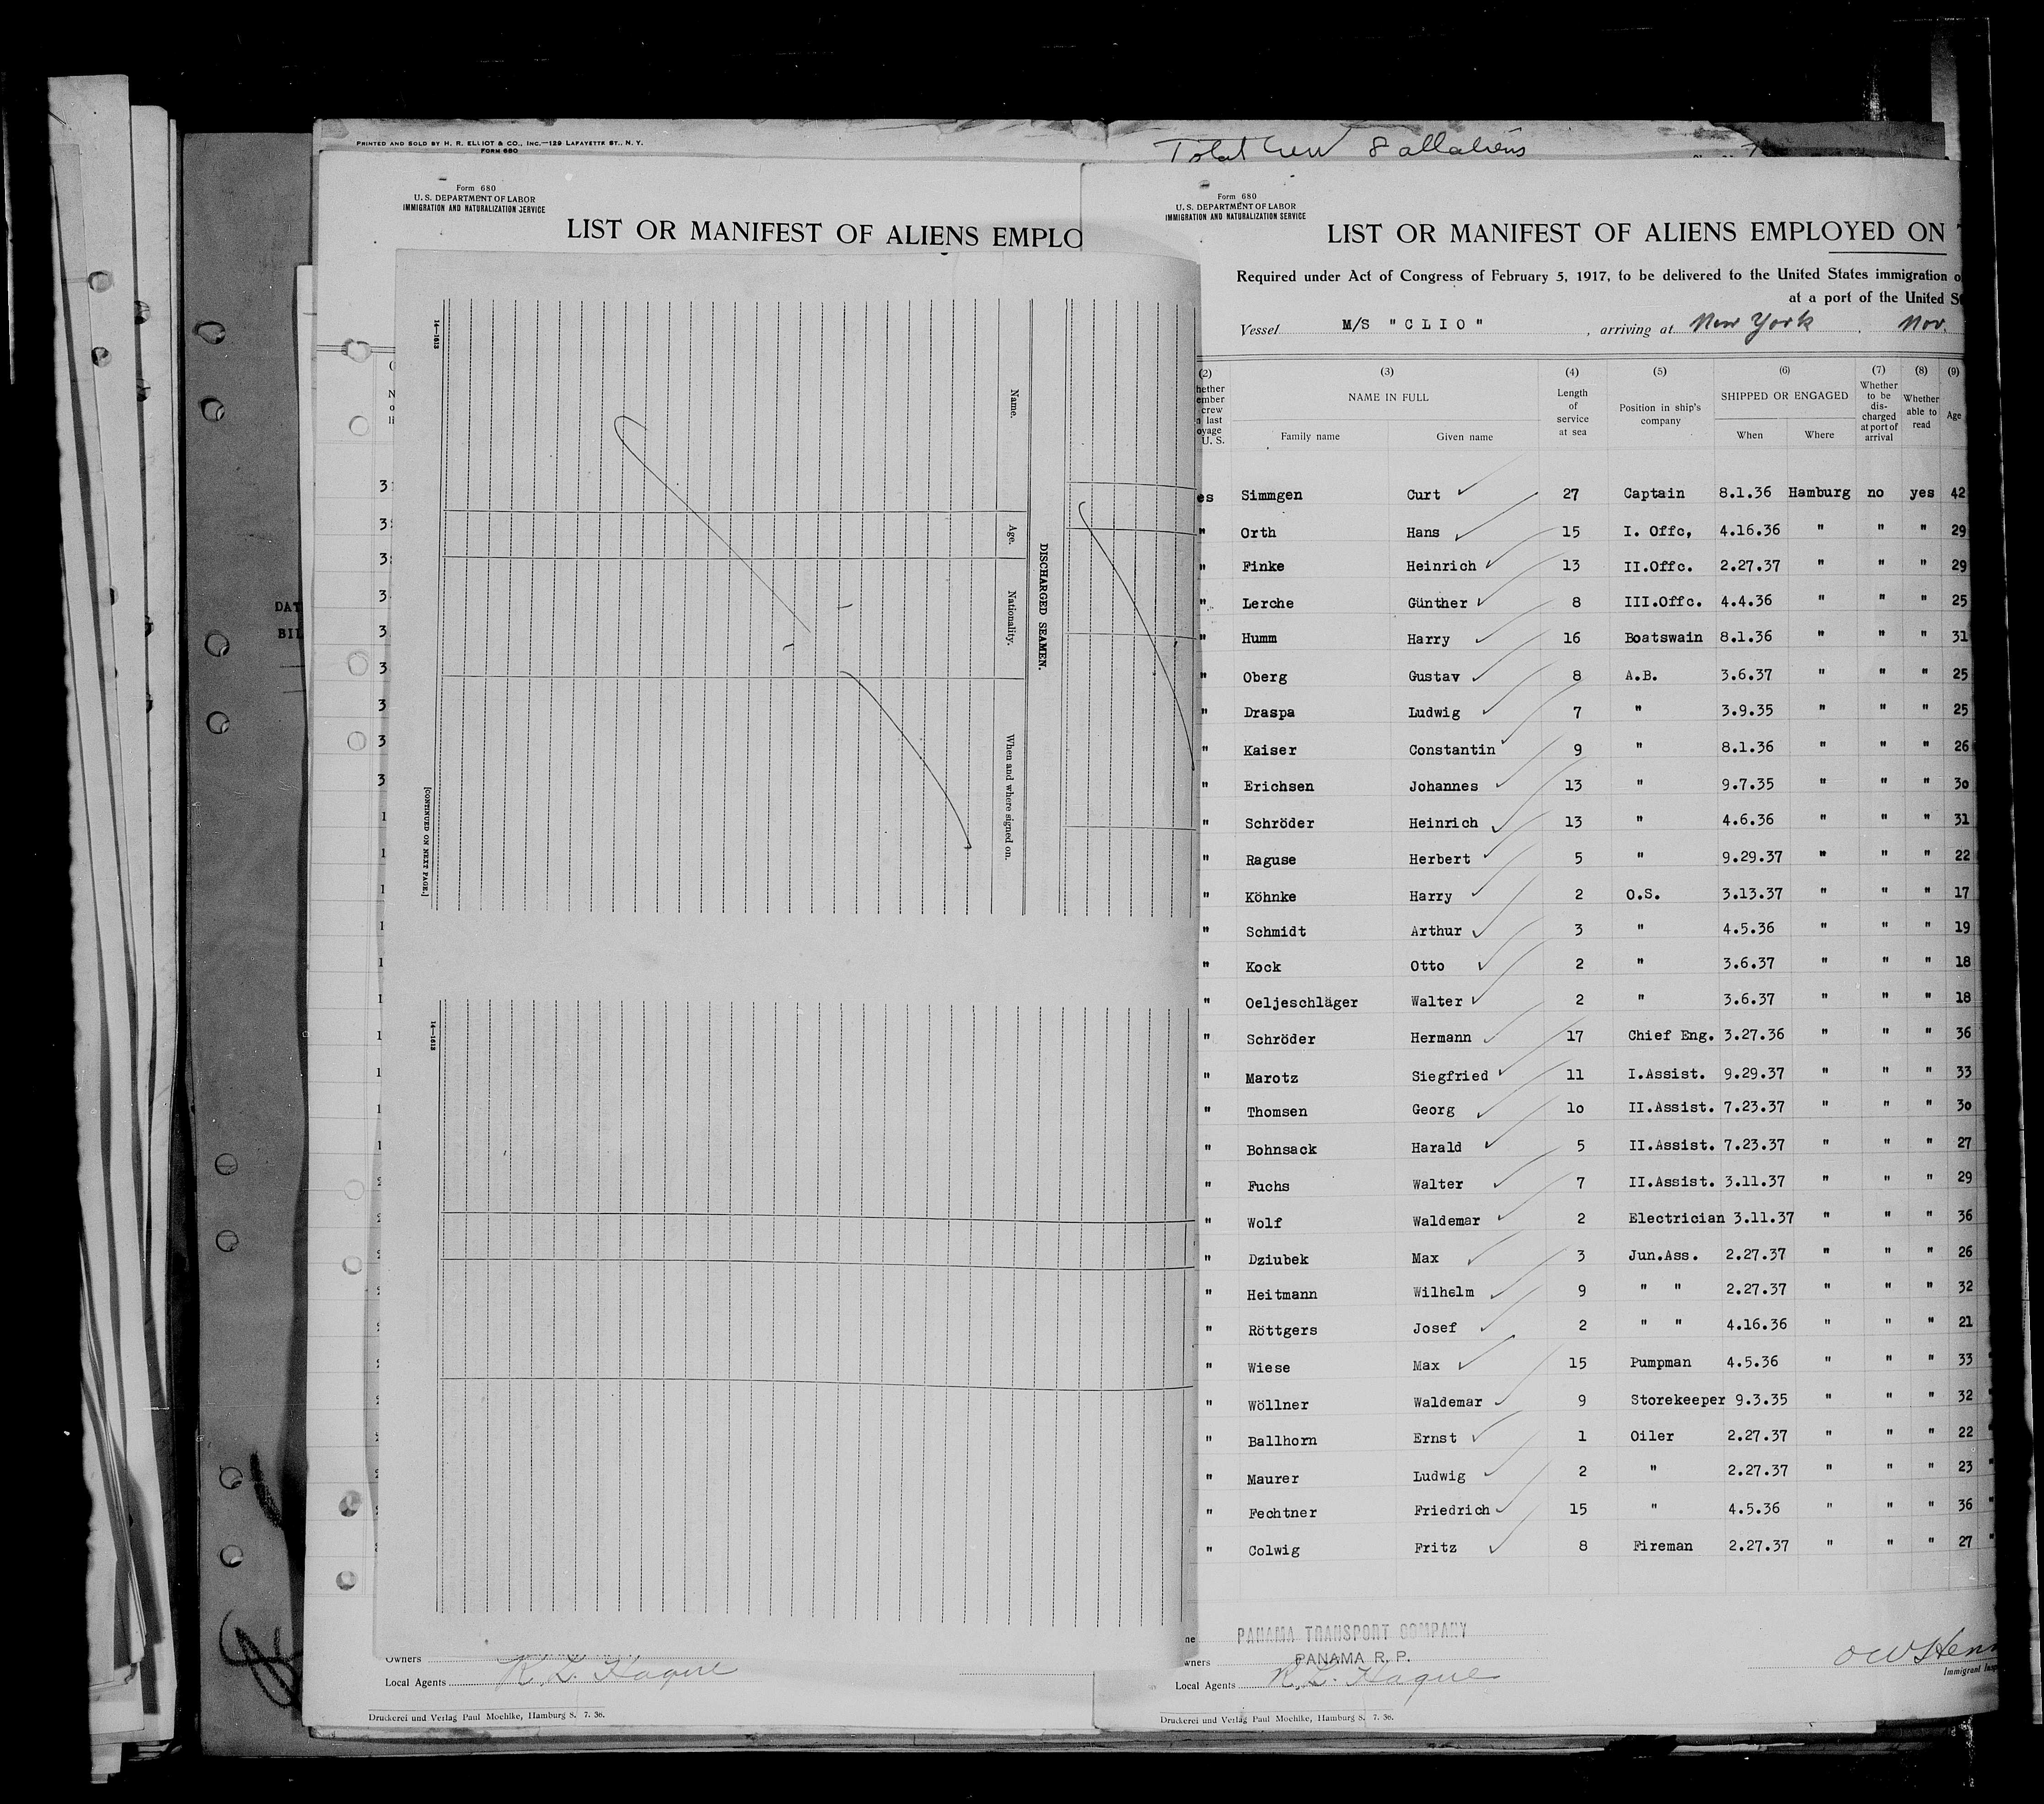 PRINTED AND SOLD BY H. R. ELLIOT & CO., INC.—129 LAFAYETTE ST., N. Y.
FORM 680
Form 680
U. S. DEPARTMENT OF LABOR
IMMIGRATION AND NATURALIZATION SERVICE
LIST OR MANIFEST OF ALIENS EMPLO
DAT
BIL
14—1613
Name.
Age.
Nationality.
When and where signed on.
DISCHARGED SEAMEN.
[CONTINUED ON NEXT PAGE.]
14—1613
Owners
Local Agents
Druckerei und Verlag Paul Moehlke, Hamburg 8. 7. 36.
Total Crew 8 all aliens
Form 680
U. S. DEPARTMENT OF LABOR
IMMIGRATION AND NATURALIZATION SERVICE
LIST OR MANIFEST OF ALIENS EMPLOYED ON
Required under Act of Congress of February 5, 1917, to be delivered to the United States immigration
at a port of the United
Vessel M/S "CLIO", arriving at New York, Nov.
(2) (3) (4) (5) (6) (7) (8) (9)
NAME IN FULL Length of service at sea Position in ship's company SHIPPED OR ENGAGED Whether to be discharged at port of arrival Whether able to read Age
Family name Given name When Where
es Simmgen Curt 27 Captain 8.1.36 Hamburg no yes 42
" Orth Hans 15 I. Offc, 4.16.36 " " " 29
" Finke Heinrich 13 II.Offc. 2.27.37 " " " 29
" Lerche Günther 8 III.Offc. 4.4.36 " " " 25
" Humm Harry 16 Boatswain 8.1.36 " " " 31
" Oberg Gustav 8 A.B. 3.6.37 " " " 25
" Draspa Ludwig 7 " 3.9.35 " " " 25
" Kaiser Constantin 9 " 8.1.36 " " " 26
" Erichsen Johannes 13 " 9.7.35 " " " 3o
" Schröder Heinrich 13 " 4.6.36 " " " 31
" Raguse Herbert 5 " 9.29.37 " " " 22
" Köhnke Harry 2 O.S. 3.13.37 " " " 17
" Schmidt Arthur 3 " 4.5.36 " " " 19
" Kock Otto 2 " 3.6.37 " " " 18
" Oeljeschläger Walter 2 " 3.6.37 " " " 18
" Schröder Hermann 17 Chief Eng. 3.27.36 " " " 36
" Marotz Siegfried 11 I.Assist. 9.29.37 " " " 33
" Thomsen Georg 1o II.Assist. 7.23.37 " " " 3o
" Bohnsack Harald 5 II.Assist. 7.23.37 " " " 27
" Fuchs Walter 7 II.Assist. 3.11.37 " " " 29
" Wolf Waldemar 2 Electrician 3.11.37 " " " 36
" Dziubek Max 3 Jun.Ass. 2.27.37 " " " 26
" Heitmann Wilhelm 9 " " 2.27.37 " " " 32
" Röttgers Josef 2 " " 4.16.36 " " " 21
" Wiese Max 15 Pumpman 4.5.36 " " " 33
" Wöllner Waldemar 9 Storekeeper 9.3.35 " " " 32
" Ballhorn Ernst 1 Oiler 2.27.37 " " " 22
" Maurer Ludwig 2 " 2.27.37 " " " 23
" Fechtner Friedrich 15 " 4.5.36 " " " 36
" Colwig Fritz 8 Fireman 2.27.37 " " " 27
PANAMA TRANSPORT COMPANY
wners PANAMA R. P.
Local Agents R. L. Hague
Immigrant
Druckerei und Verlag Paul Moehlke, Hamburg 8. 7. 36.